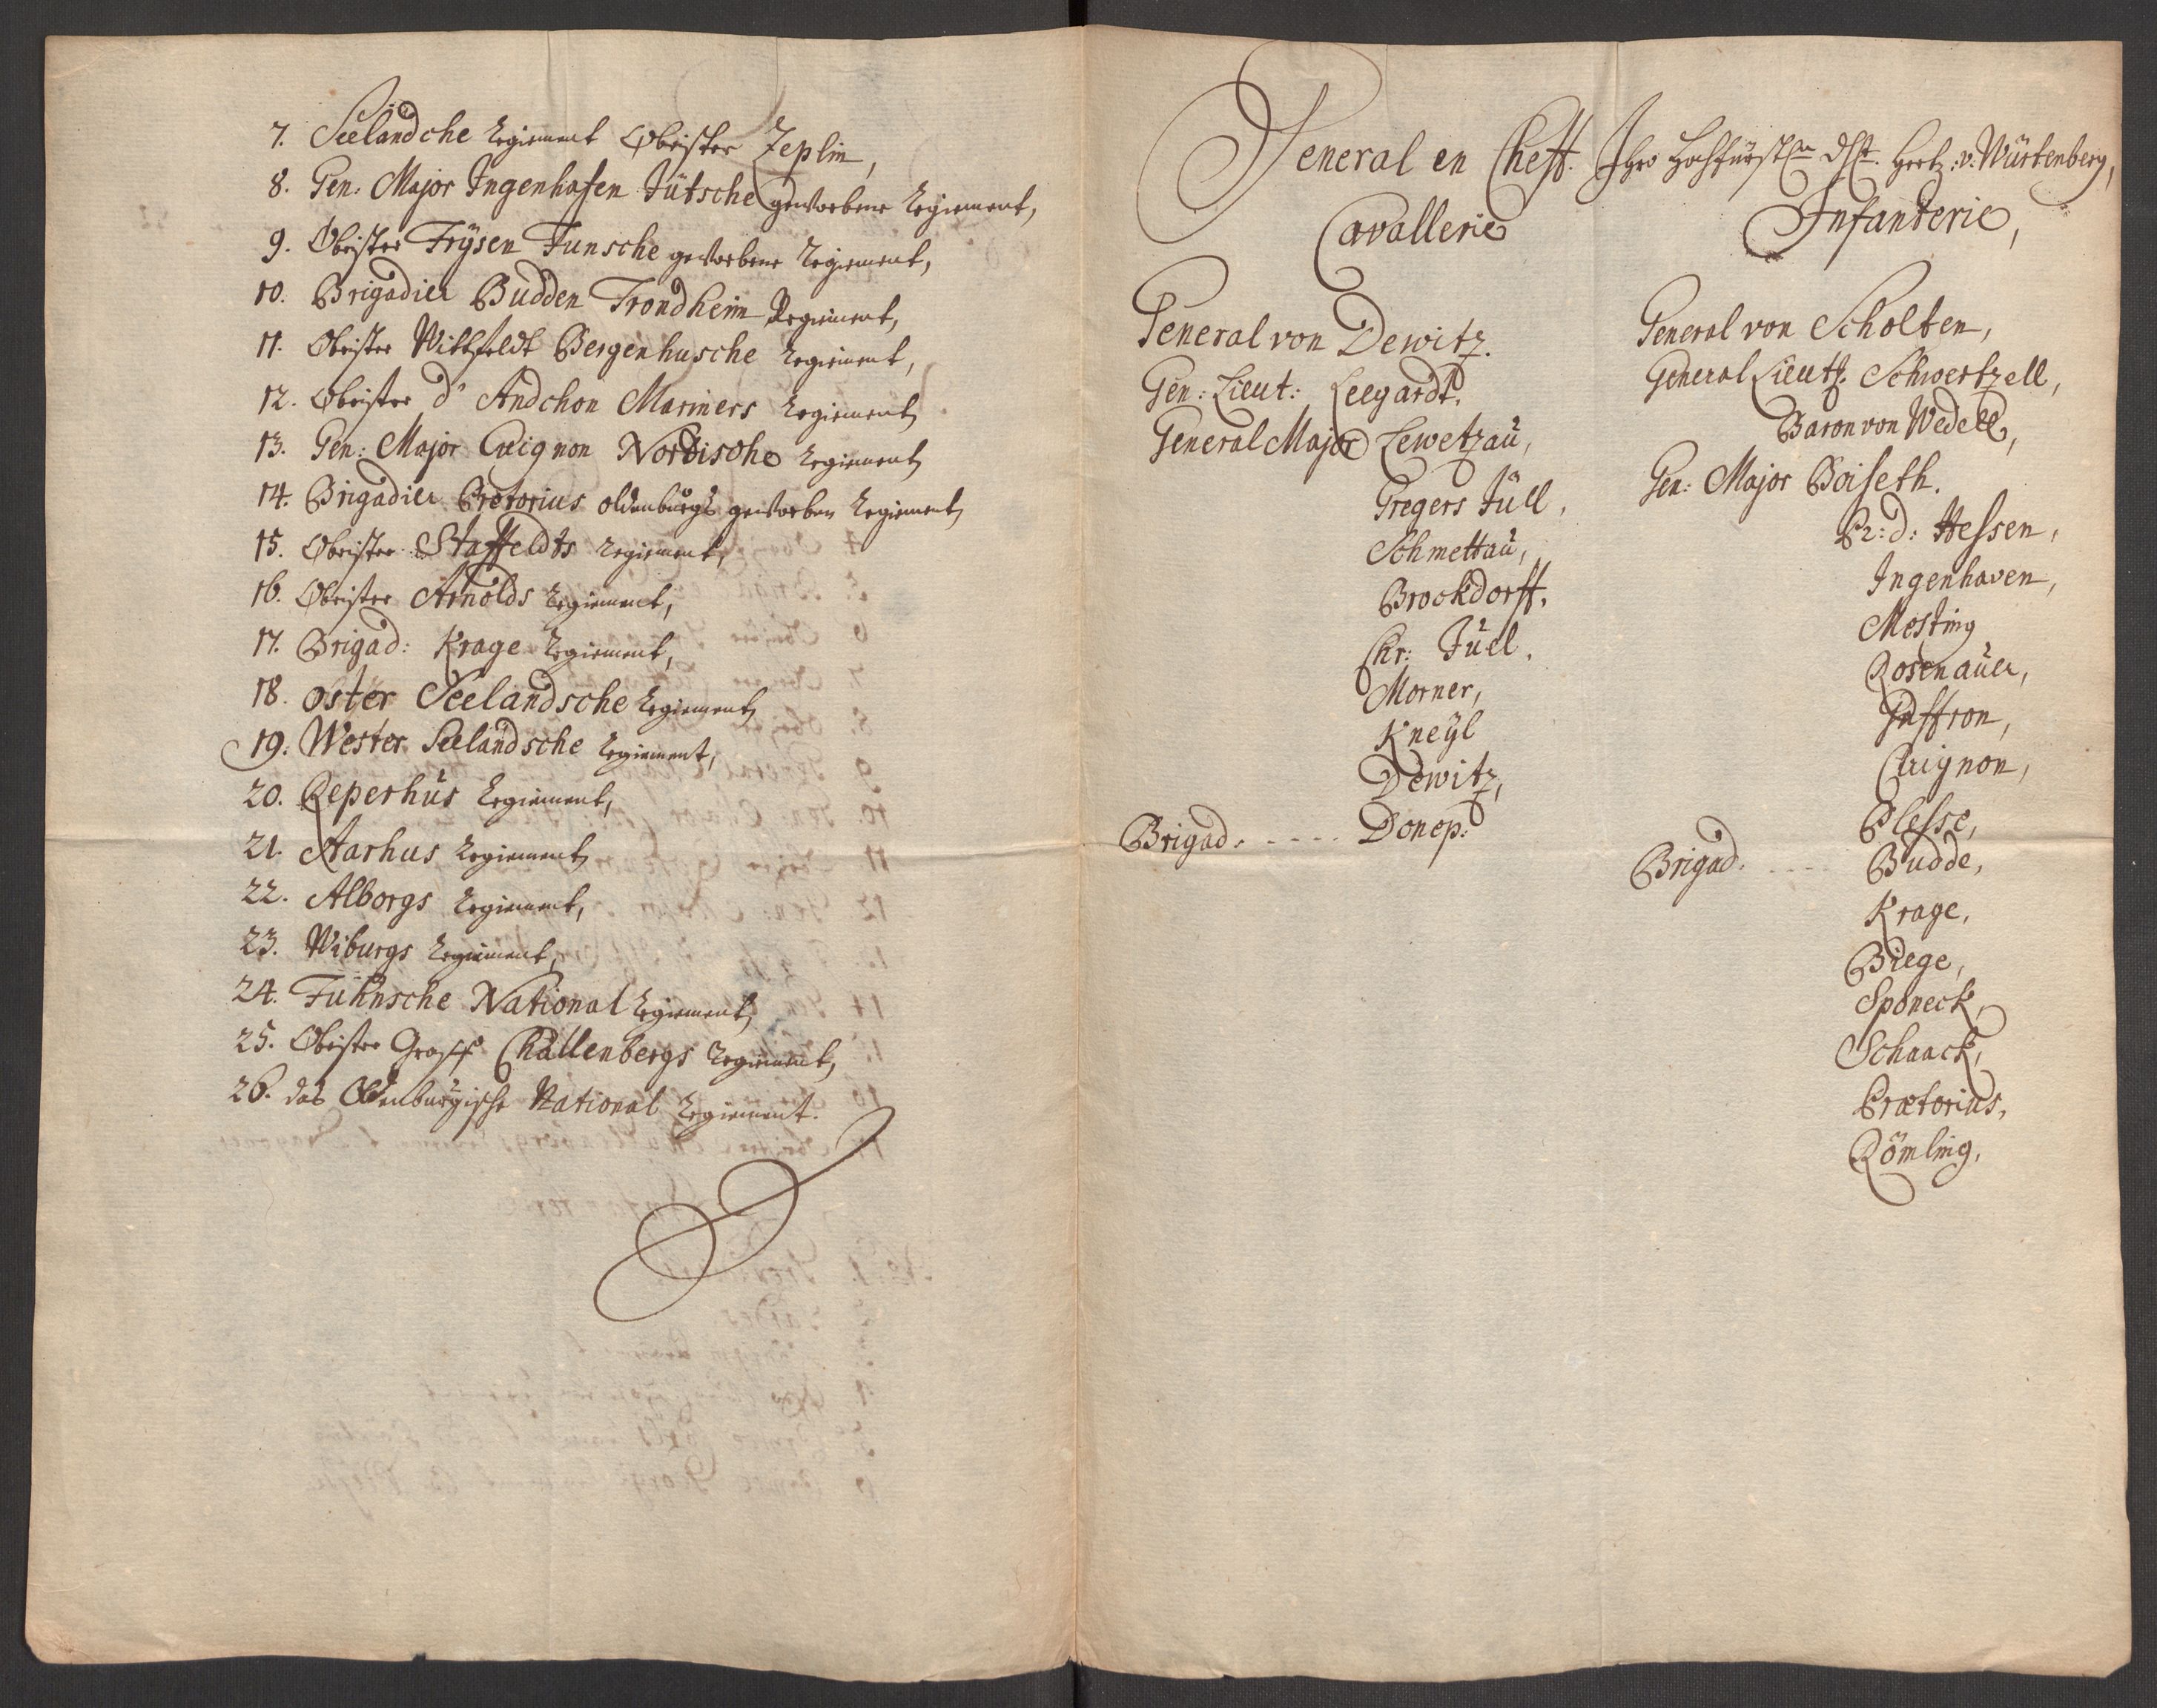 7. Seelandche Regiment Obrister Zeplin,
8. Gen: Major Ingenhafen Jütsche geworbene Regiement,
9. Obrister Frÿsen Funsche geworbene Regiement,
10. Brigadier Budden Trondheim Regiement,
11. Obrister Wittfeldt Bergenhusche Regiement,
12. Obrister d' Andchon Mariners Regiement,
13. Gen: Major Cuignon Nordische Regiement,
14. Brigadier Pretorius oldenburgs geworben Regiement,
15. Obrister Staffeldts Regiement,
16. Obrister Arnolds Regiement,
17. Brigad: Krage Regiement,
18. oster Seelandsche Regiement,
19. Wester Seelandsche Regiement,
20. Reperhus Regiement,
21. Aarhus Regiement,
22. Alborgs Regiement,
23. Wiburgs Regiement,
24. Fühnsche National Regiement,
25. Obrister Graff Challenbergs Regiement,
26. das Oldenburgische National Regiement.
General en Cheff. Ihro Hochfürstl. Dhlt. Hertz: v: Würtenberg,
Cavallerie
General von Dewitz.
Gen: Lieut: Leegardt.
General Major Lewetzau,
Gregers Jull,
Schmettau,
Brockdorff,
Chr: Juel,
Morner,
Kneÿl
Dewitz,
Brigad: - - - - Donep:
Infanterie,
General von Scholten,
General Lieut: Schwertzell,
Baron von Wedell,
Gen: Major Boiseth.
Pr: d: Hessen,
Ingenhaven,
Mosting
Rosenauer,
Gaffron,
Cuignon,
Plesse,
Brigad: - - - - Budde,
Krage,
Briege,
Sponeck,
Schaack,
Prætorius,
Römling,